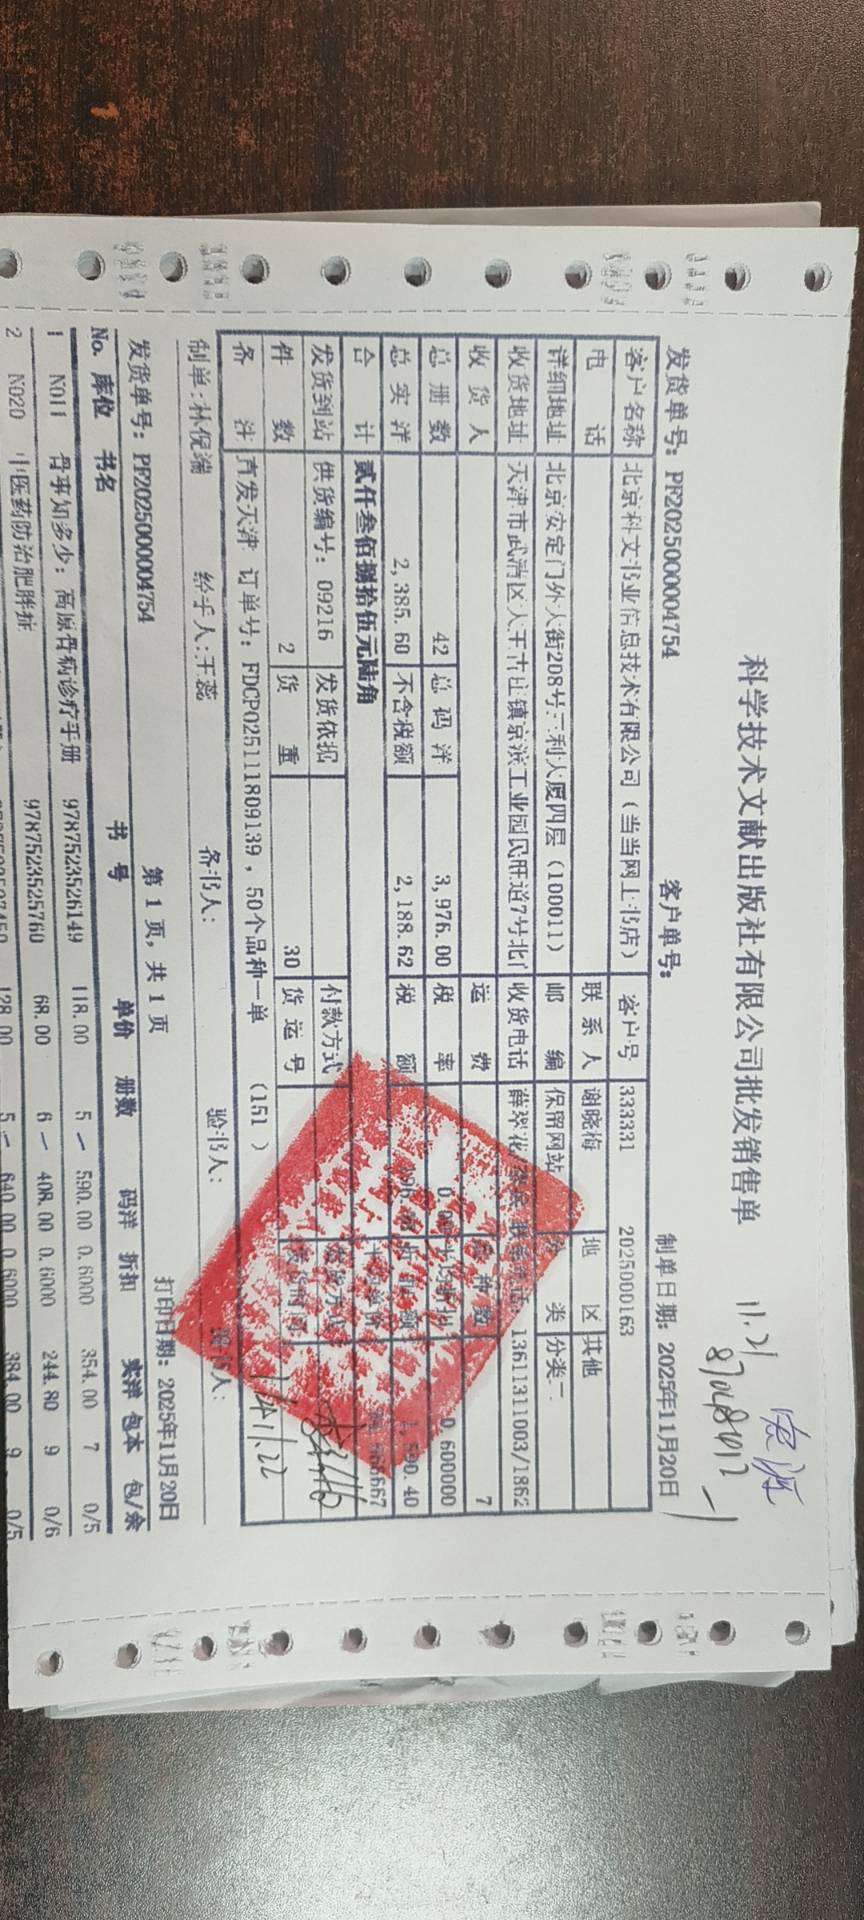 科学技术文献出版社有限公司批发销售单
11.21
发货单号: PF2025000004754 客户单号: 制单日期: 2025年11月20日
客户名称 北京科文书业信息技术有限公司(当当网上书店) 客户号 333331 2025000163
电 话 联系人 谢晓梅 地 区 其他
详细地址 北京安定门外大街208号三利大厦四层(100011) 邮 编 保留网站 分 类 分类二
收货地址 天津市武清区大王古庄镇京滨工业园民旺道7号北门 收货电话 薛翠花 13611311003/1862
收 货 人 运 费 品 种 数 7
总 册 数 42 总 码 洋 3,976.00 税 率 0.600000
总 实 洋 2,385.60 不含税额 2,188.62 税 额 1,590.40
合 计 贰仟叁佰捌拾伍元陆角
发货到站 供货编号: 09216 发货依据 付款方式 发货方式
件 数 2 货 重 30 货 运 号
备 注 直发天津 订单号: FDCP025111809139, 50个品种一单 (151 )
11.22
制单: 林倪端 经手人: 王蕊 备书人: 验书人:
发货单号: PF2025000004754 第 1 页, 共 1 页 打印日期: 2025年11月20日
No. 库位 书名 书 号 单价 册数 码洋 折扣 实洋 包本 包/余
1 N011 骨事知多少: 高原骨病诊疗手册 9787523526149 118.00 5 — 590.00 0.6000 354.00 7 0/5
2 N020 中医药防治肥胖症 9787523525760 68.00 6 — 408.00 0.6000 244.80 9 0/6
128.00 5 — 640.00 0.6000 384.00 9 0/5